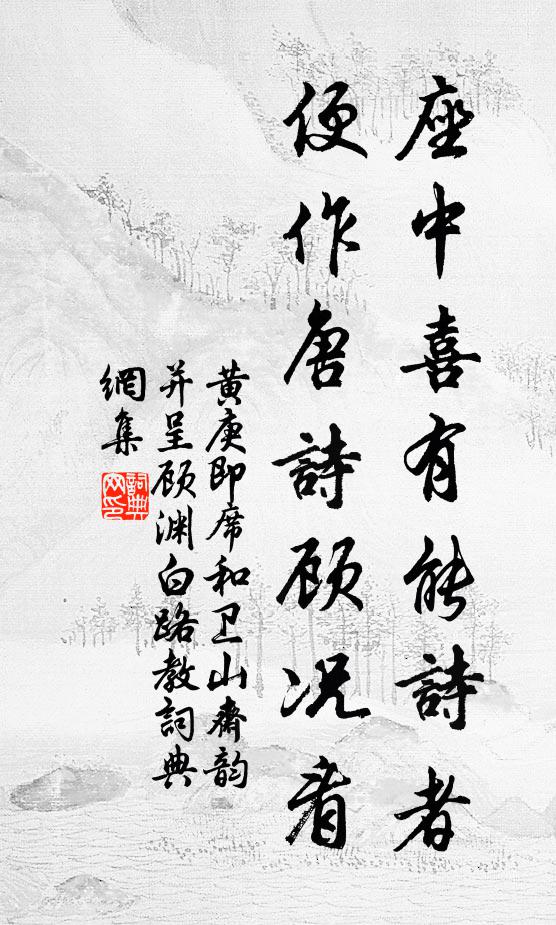 座中喜有能詩者
便作唐詩顾况看
黄庚即席和卫山斋韵
并呈顾渊白路教詞典
網集
詞典
网印